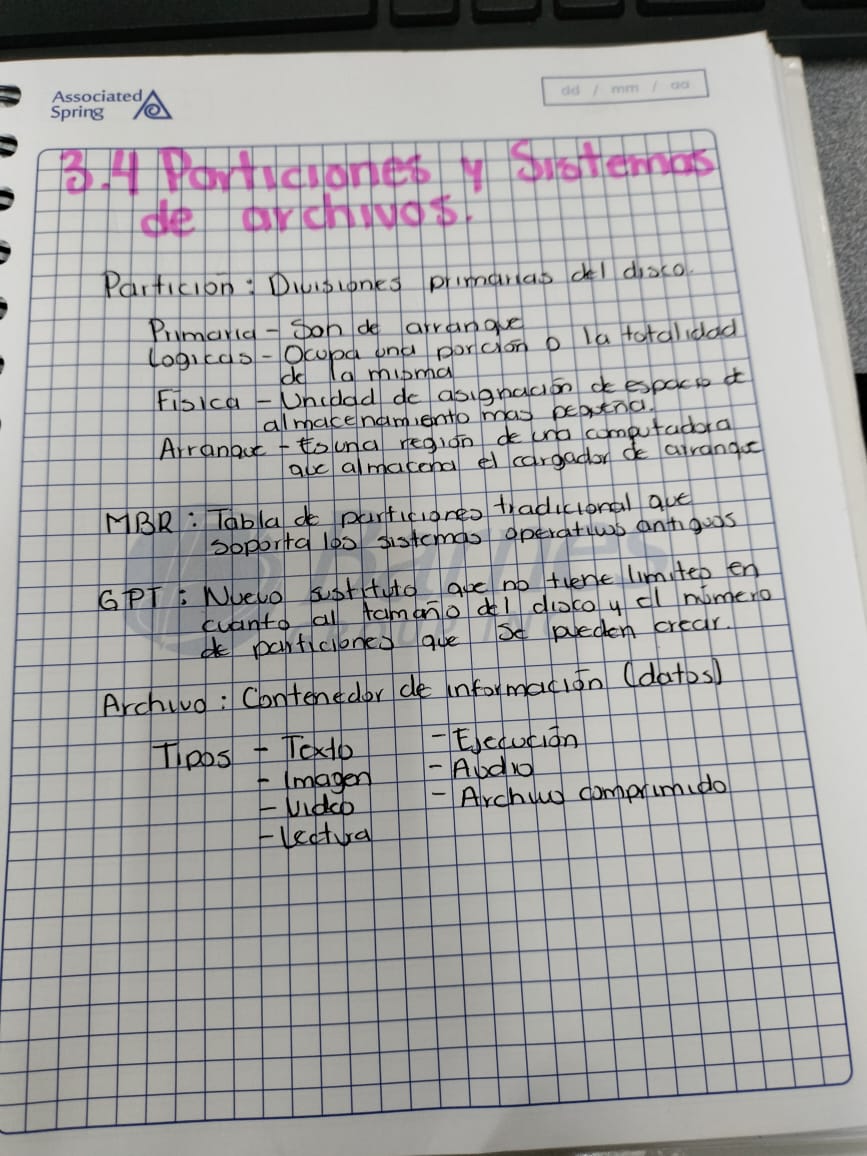 Associated
Spring
dd / mm / aa
3.4 Particiones y Sistemas
de archivos.
Partición : Divisiones primarias del disco.
Primaria - Son de arranque
Logicas - Ocupa una porción o la totalidad
de la misma
Física - Unidad de asignación de espacio d
almacenamiento mas pequeña.
Arranque - Es una región de una computadora
que almacena el cargador de arranque
MBR : Tabla de particiones tradicional que
soporta los sistemas operativos antiguos
GPT : Nuevo sustituto que no tiene limites en
cuanto al tamaño del disco y el número
de particiones que se pueden crear.
Archivo : Contenedor de información (datos)
Tipos - Texto - Ejecución
- Imagen - Audio
- Video - Archivo comprimido
- Lectura